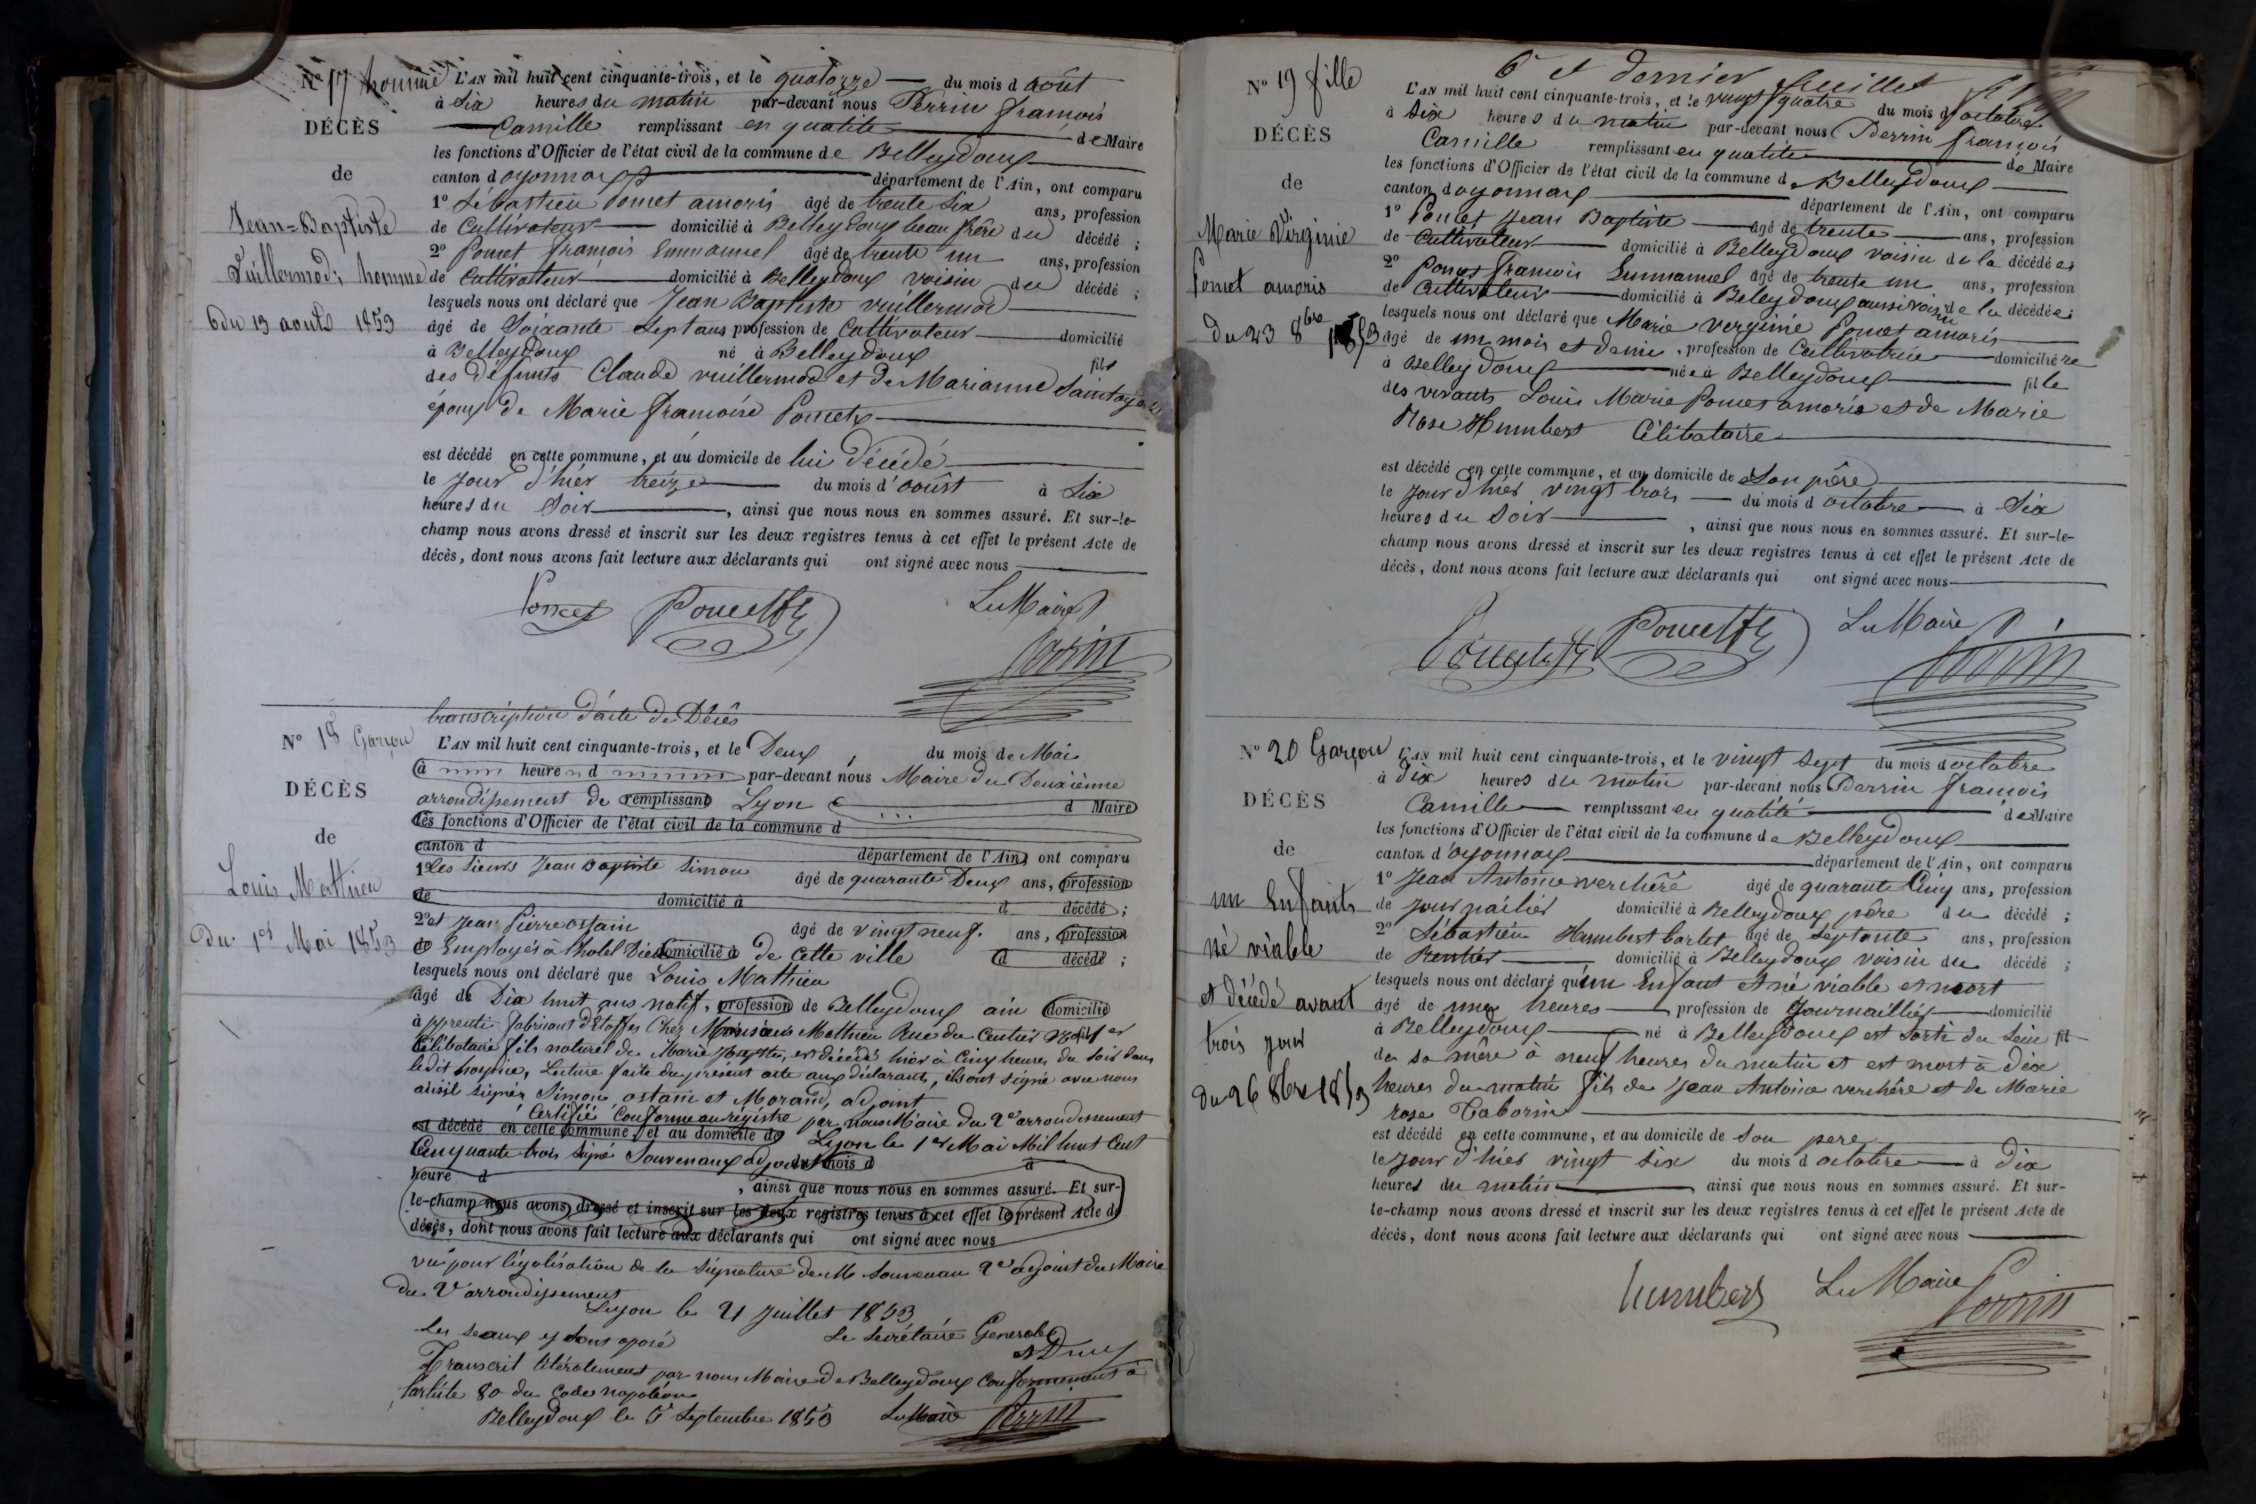 Nº 17 homme
DÉCÈS
de
Jean=Baptiste
Vuillermod, homme
du 13 août 1853
L'AN mil huit cent cinquante-trois, et le quatorze du mois d août
à Six heures du matin par-devant nous Perrin françois
Camille remplissant en qualité de Maire
les fonctions d'Officier de l'état civil de la commune de Belleydoux
canton d oyonnax département de l'Ain, ont comparu
1º Sébastien Poncet amoris âgé de trente Six ans, profession
de Cultivateur domicilié à Belleydoux beau frère du décédé ;
2º Poncet françois Emmanuel âgé de trente un ans, profession
de Cultivateur domicilié à Belleydoux voisin du décédé ;
lesquels nous ont déclaré que Jean Baptiste vuillermod
âgé de Soixante Sept ans profession de Cultivateur domicilié
à Belleydoux né à Belleydoux fils
des défunts Claude vuillermod et de Marianne Saintoyant
époux de Marie françoise Poncet
est décédé en cette commune, et au domicile de lui décédé
le Jour d'hier treize du mois d'août à Six
heures du Soir, ainsi que nous nous en sommes assuré. Et sur-le-
champ nous avons dressé et inscrit sur les deux registres tenus à cet effet le présent Acte de
décès, dont nous avons fait lecture aux déclarants qui ont signé avec nous
Poncet Poncet Le Maire
Perrin
transcription d'acte de Décès
Nº 18 Garçon
DÉCÈS
de
Louis Mathieu
Du 1er Mai 1853
L'AN mil huit cent cinquante-trois, et le Deux du mois de Mai
à heure d par-devant nous Maire du Deuxième
arrondissement de remplissant Lyon d Maire
les fonctions d'Officier de l'état civil de la commune d
canton d département de l'Ain, ont comparu
1º Les Sieurs Jean Baptiste Simon âgé de quarante Deux ans, profession
de domicilié à d décédé ;
2º et Jean Pierre ostain âgé de vingt neuf ans, profession
de Employés à l'hotel Dieu domicilié à de cette ville d décédé ;
lesquels nous ont déclaré que Louis Mathieu
âgé de Dix huit ans natif, profession de Belleydoux ain domicilié
à apprenti fabricant d'Etoffes Chez Monsieur Mathieu Rue du
Célibataire fils naturel de Marie est décédé hier à Cinq heures du Soir dans
ledit hospice, Lecture faite du présent acte aux déclarants, ils ont signé avec nous
ainsi signés Simon, ostain et Morand, adjoint
Certifié Conforme au régistre par nous Maire du 2e arrondissement
est décédé en cette commune, et au domicile de Lyon le 1er Mai Mil huit Cent
Cinquante trois Signé Souvenaux adjoint du mois d à
heure d
, ainsi que nous nous en sommes assuré. Et sur-
le-champ nous avons dressé et inscrit sur les deux registres tenus à cet effet le présent Acte de
décès, dont nous avons fait lecture aux déclarants qui ont signé avec nous
vu pour légalisation de la signature de M adjoint du Maire
du 2e arrondissement
Lyon le 21 Juillet 1853
Les sceaux y sont aposé Le Secrétaire General
Transcrit litéralement par nous Maire de Belleydoux Conformement à
l'article 80 du Code napoléon
Belleydoux le 5 Septembre 1853 Le Maire Perrin
6e et dernier feuillet
Nº 19 fille
DÉCÈS
de
Marie Virginie
Poncet amoris
du 23 8bre 1853
L'AN mil huit cent cinquante-trois, et le vingt quatre du mois d'octobre
à Six heures du matin par-devant nous Perrin françois
Camille remplissant en qualité de Maire
les fonctions d'Officier de l'état civil de la commune de Belleydoux
canton d oyonnax département de l'Ain, ont comparu
1º Poncet Jean Baptiste âgé de trente ans, profession
de Cultivateur domicilié à Belleydoux voisin de la décédée
2º Poncet françois Emmanuel âgé de trente un ans, profession
de Cultivateur domicilié à Belleydoux aussi voisin de la décédée ;
lesquels nous ont déclaré que Marie verginie Poncet amoris
âgé de un mois et demi, profession de Cultivatrice domiciliére
à Belleydoux née à Belleydoux fille
des vivants Louis Marie Poncet amoris et de Marie
Rose Humbert Célibataire
est décédé en cette commune, et au domicile de Son père
le Jour d'hier vingt trois du mois d octobre à Six
heures du Soir, ainsi que nous nous en sommes assuré. Et sur-le-
champ nous avons dressé et inscrit sur les deux registres tenus à cet effet le présent Acte de
décès, dont nous avons fait lecture aux déclarants qui ont signé avec nous
Poncet Poncet Le Maire
Perrin
Nº 20 Garçon
DÉCÈS
de
un Enfant
né viable
et décédé avant
trois jour
du 26 8bre 1853
L'AN mil huit cent cinquante-trois, et le vingt Sept du mois d octobre
à dix heures du matin par-devant nous Perrin françois
Camille remplissant en qualité de Maire
les fonctions d'Officier de l'état civil de la commune de Belleydoux
canton d'oyonnax département de l'Ain, ont comparu
1º Jean Antoine verchère âgé de quarante Cinq ans, profession
de Journailier domicilié à Belleydoux père du décédé ;
2º Sébastien Humbert barlet âgé de Septante ans, profession
de Rentier domicilié à Belleydoux voisin du décédé ;
lesquels nous ont déclaré qu'un Enfant et né viable et mort
âgé de une heures profession de Journaillier domicilié
à Belleydoux né à Belleydoux est Sorti du Sein fil
de sa mère à neuf heures du matin et est mort à dix
heures du matin fils de Jean Antoine verchère et de Marie
rose Taborin
est décédé en cette commune, et au domicile de Son pere
le Jour d'hier vingt Six du mois d octobre à Dix
heures du matin ainsi que nous nous en sommes assuré. Et sur-
le-champ nous avons dressé et inscrit sur les deux registres tenus à cet effet le présent Acte de
décès, dont nous avons fait lecture aux déclarants qui ont signé avec nous
humbert Le Maire Perrin